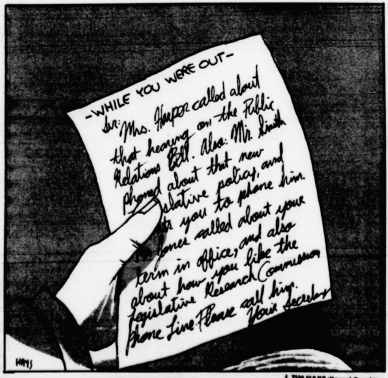 -WHILE YOU WERE OUT-
Sir: Mrs. Harper called about
that hearing on the Public
Relations Bill. Also: Mr. Smith
phoned about that new
slative policy, and
ts you to phone him.
ones called about your
term in office, and also
about how you like the
Legislative Research Commission
phone line. Please call him.
Your Secretary
HAYS